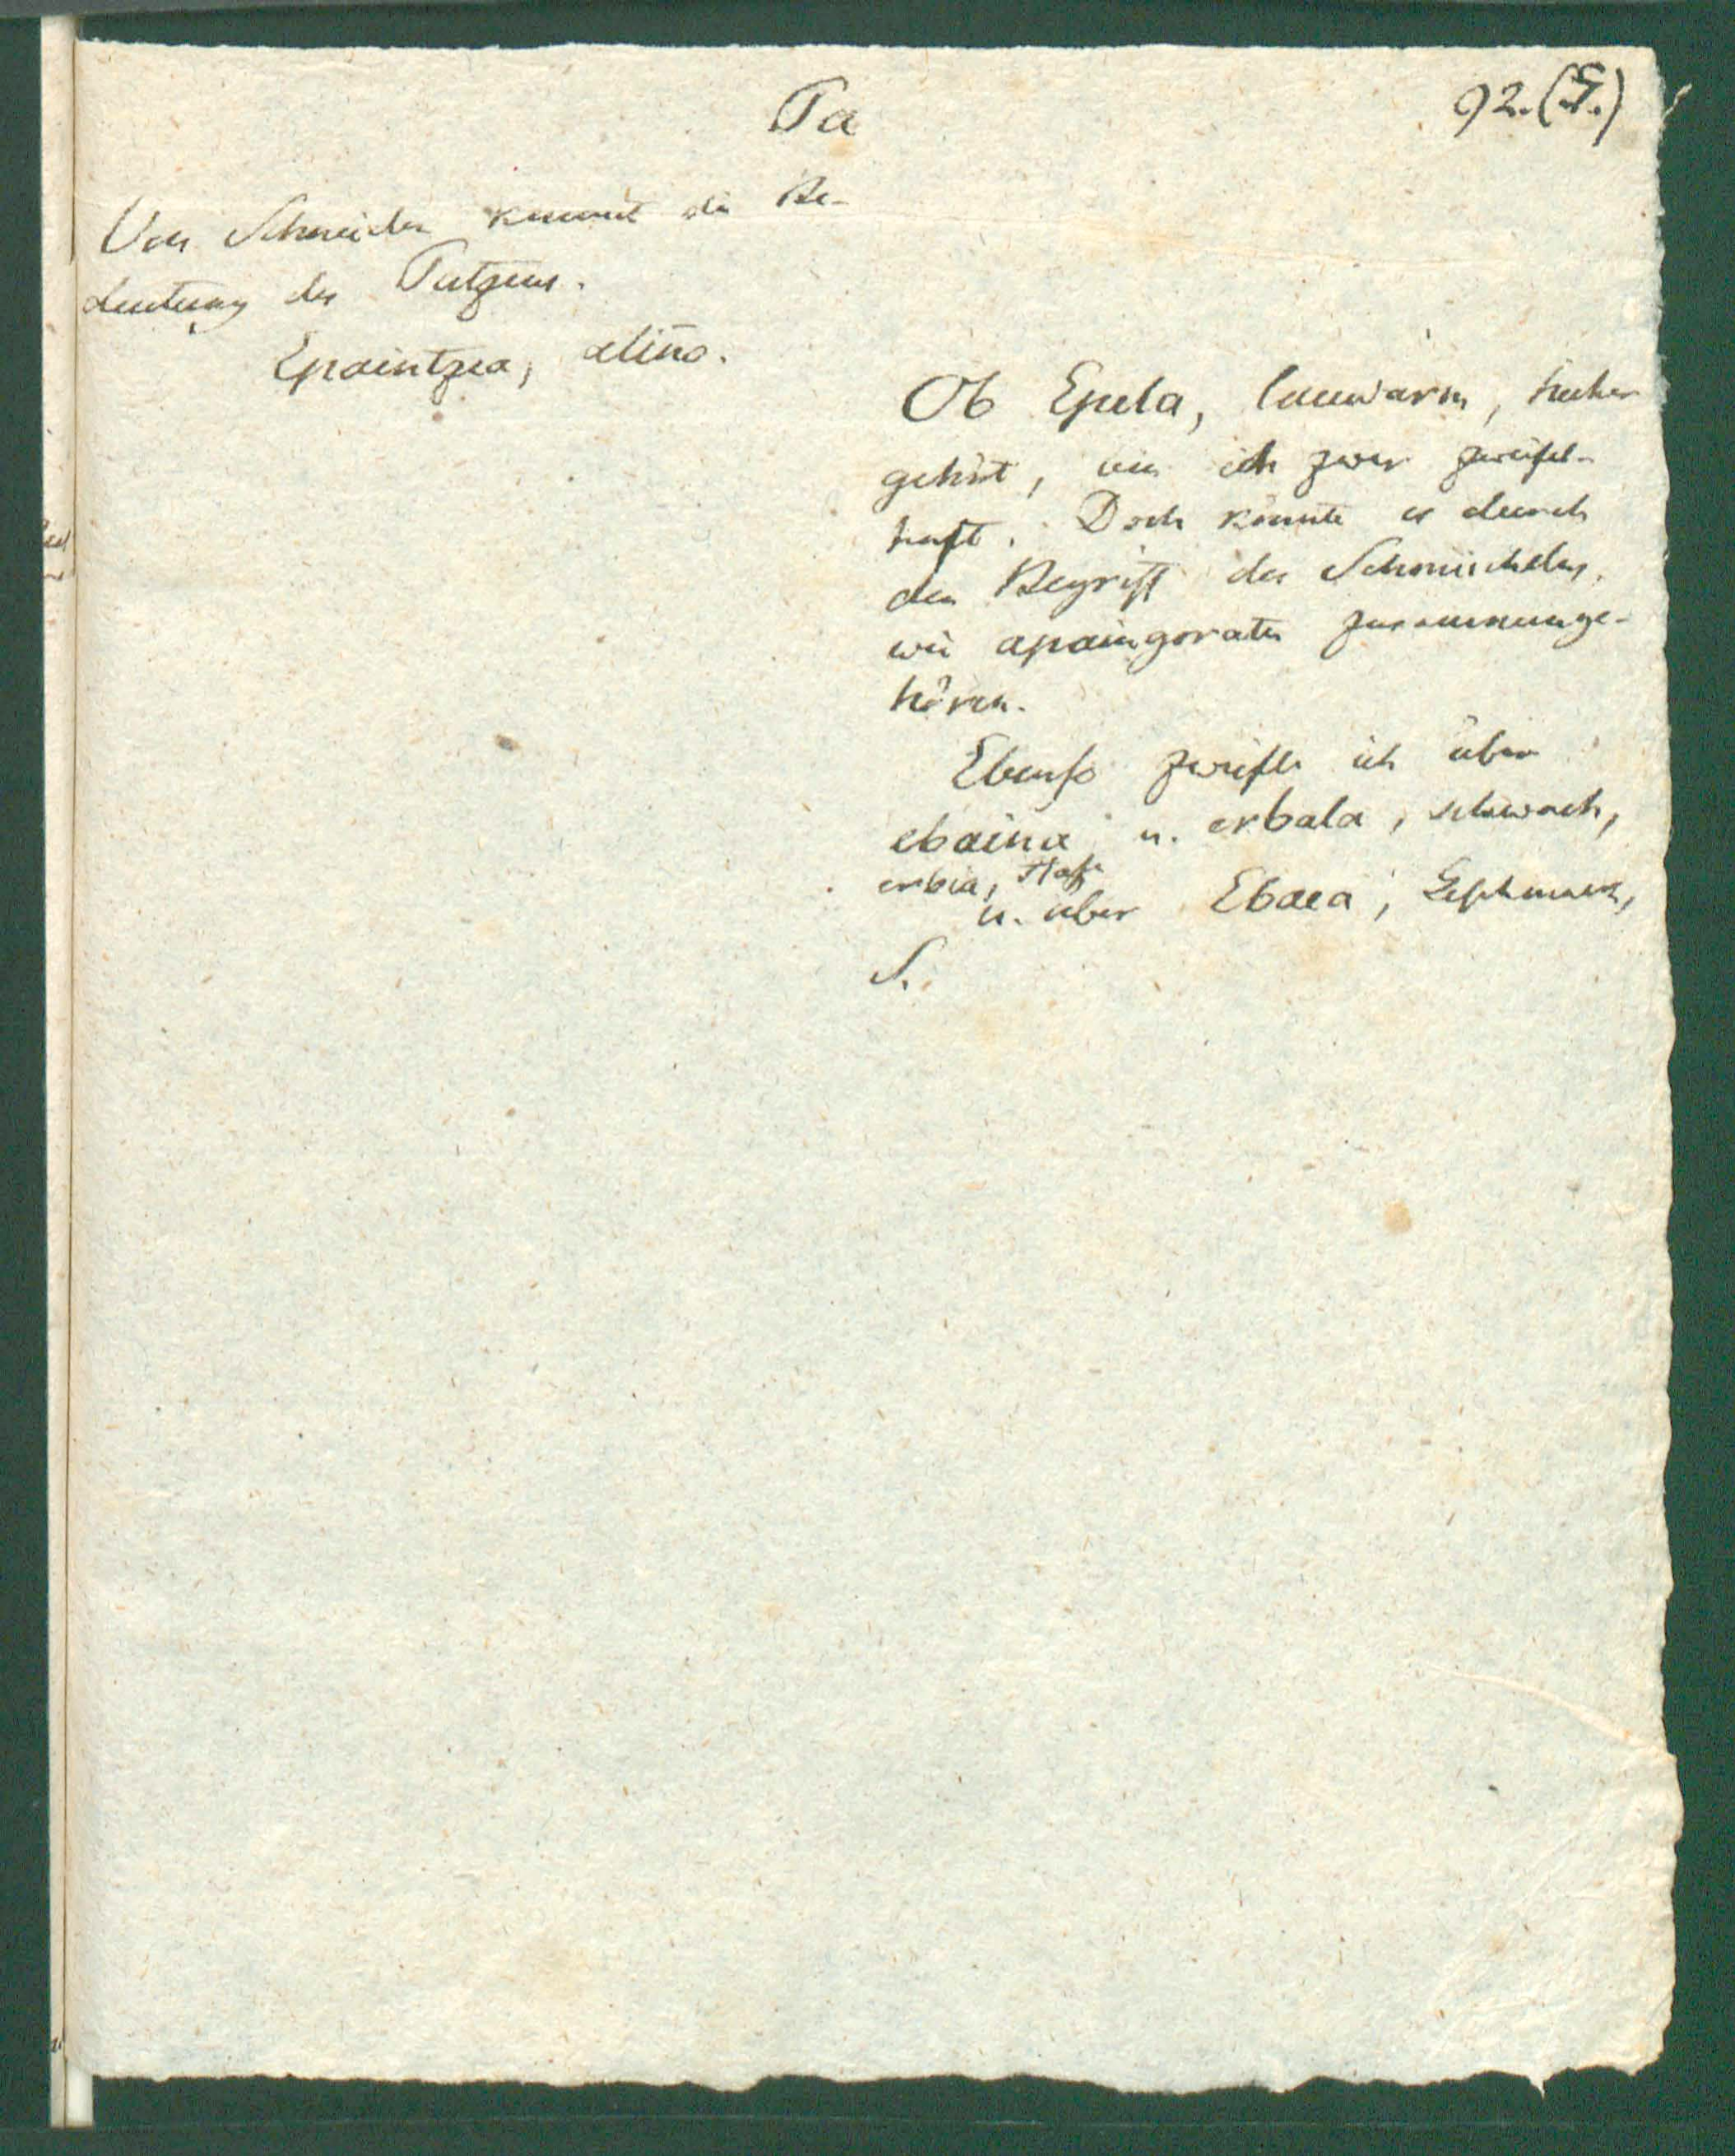 Pa
92. (5.)
Von Schneiden kommt die Be-
deutung des Putzens.
Epaintzea, aliño.
Ob Epela, lauwarm, hieher
gehört, bin ich zwar zweifel-
haft. Doch könnte es durch
den Begriff des Schmeichelns,
wie apaingoratu zusammenge-
hören.
Ebenso zweifle ich über
ebaina u. erbala, schwach,
erbia, Hase
u. über Ebaea, Geschmack,
S.